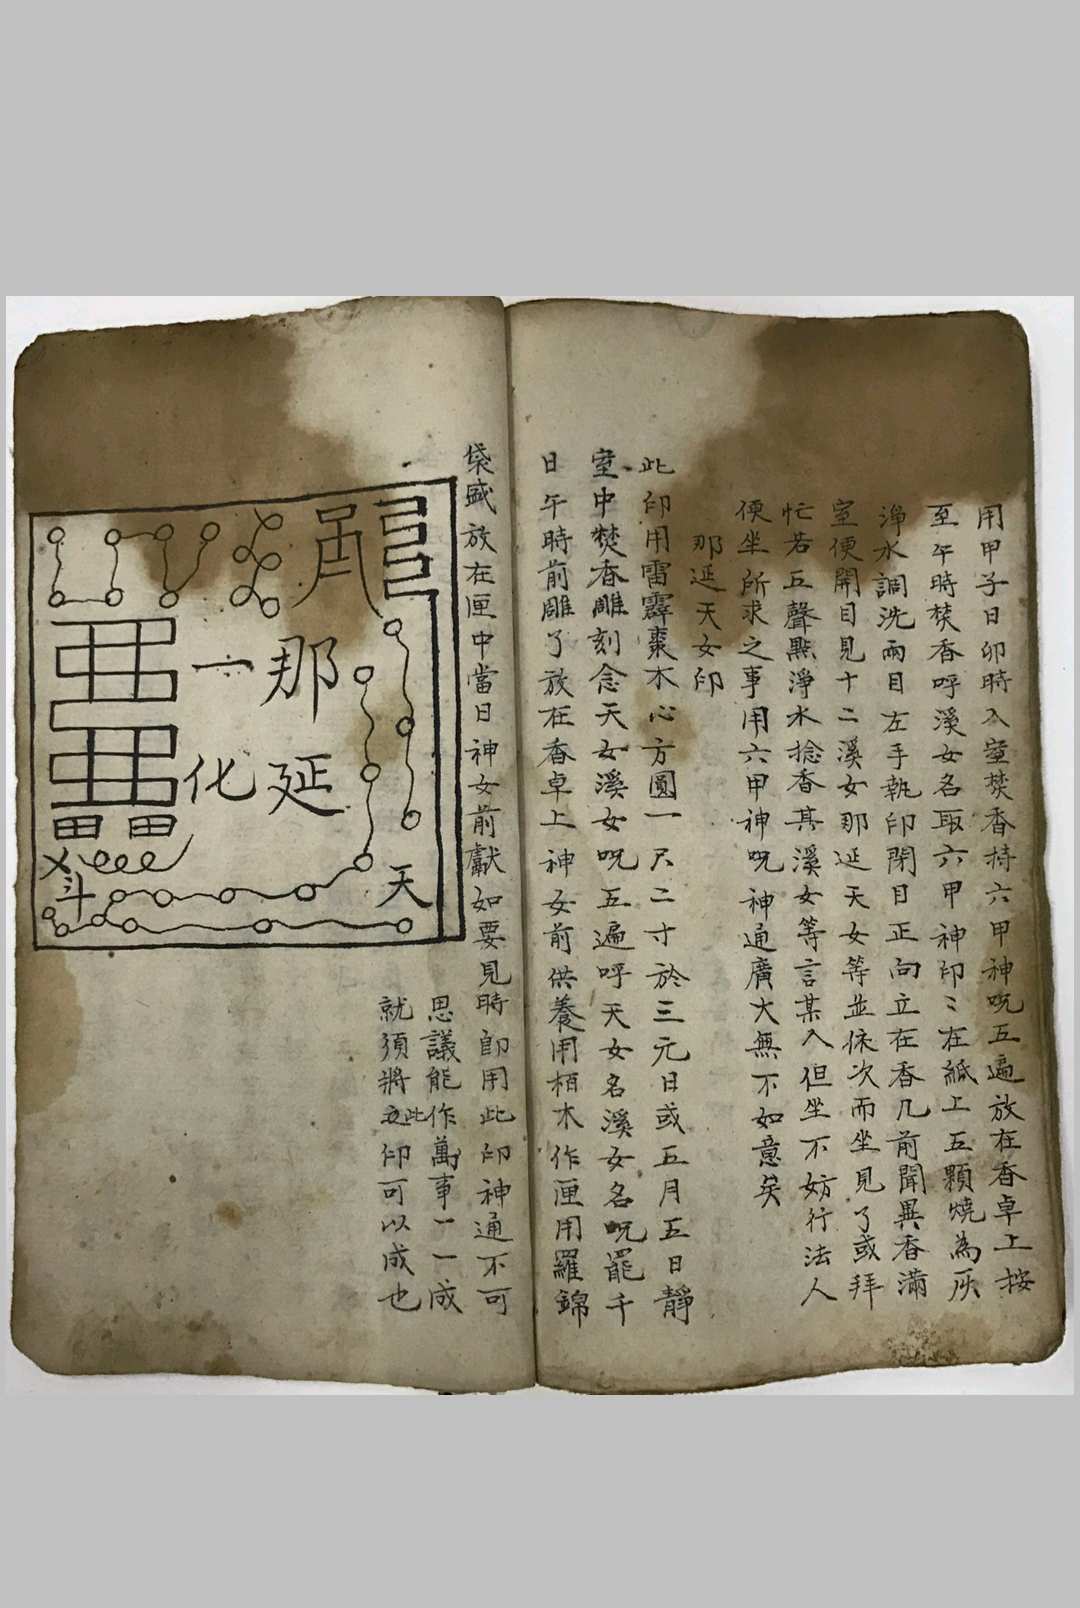 用甲子日卯時入室焚香持六甲神呪五遍放在香卓上按
至午時焚香呼溪女名取六甲神印〻在紙上五顆燒為灰
淨水調洗兩目左手執印閉目正向立在香几前聞異香滿
室便開目見十二溪女那延天女等並依次而坐見了或拜
忙若五聲點淨水捻香其溪女等言某入但坐不妨行法人
便坐所求之事用六甲神呪神通廣大無不如意矣
那延天女印
此印用雷霹棗木心方圓一尺二寸於三元日或五月五日靜
室中焚香雕刻念天女溪女呪五遍呼天女名溪女名呪罷千
日午時前雕了放在香卓上神女前供養用栢木作匣用羅錦
袋盛放在匣中當日神女前獻如要見時卽用此印神通不可
思議能作萬事一一成
就須將此印可以成也
那延
天
一化
斗